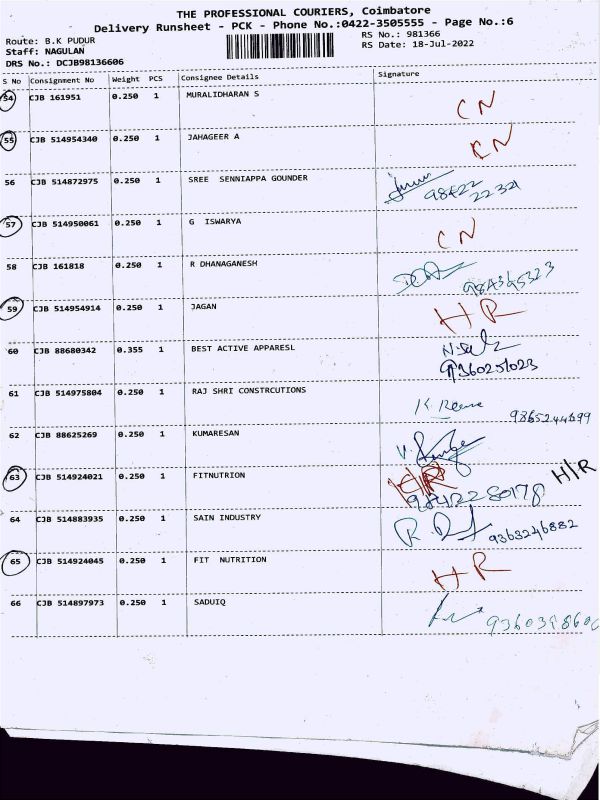 THE PROFESSIONAL COURIERS, Coimbatore
Delivery Runsheet - PCK - Phone No.:0422-3505555 - Page No.:6
Route: B.K PUDUR
RS No.: 981366
Staff: NAGULAN
RS Date: 18-Jul-2022
DRS No.: DCJB98136606
S No Consignment No Weight PCS Consignee Details Signature
54 CJB 161951 0.250 1 MURALIDHARAN S CN
55 CJB 514954340 0.250 1 JAHAGEER A CN
56 CJB 514872975 0.250 1 SREE SENNIAPPA GOUNDER 98422
22321
57 CJB 514950061 0.250 1 G ISWARYA CN
58 CJB 161818 0.250 1 R DHANAGANESH
59 CJB 514954914 0.250 1 JAGAN HR
60 CJB 88680342 0.355 1 BEST ACTIVE APPARESL
9360251023
61 CJB 514975804 0.250 1 RAJ SHRI CONSTRCUTIONS 9865244699
62 CJB 88625269 0.250 1 KUMARESAN
63 CJB 514924021 0.250 1 FITNUTRION H/R H/R
9842280178
64 CJB 514883935 0.250 1 SAIN INDUSTRY 9363246882
65 CJB 514924045 0.250 1 FIT NUTRITION HR
66 CJB 514897973 0.250 1 SADUIQ